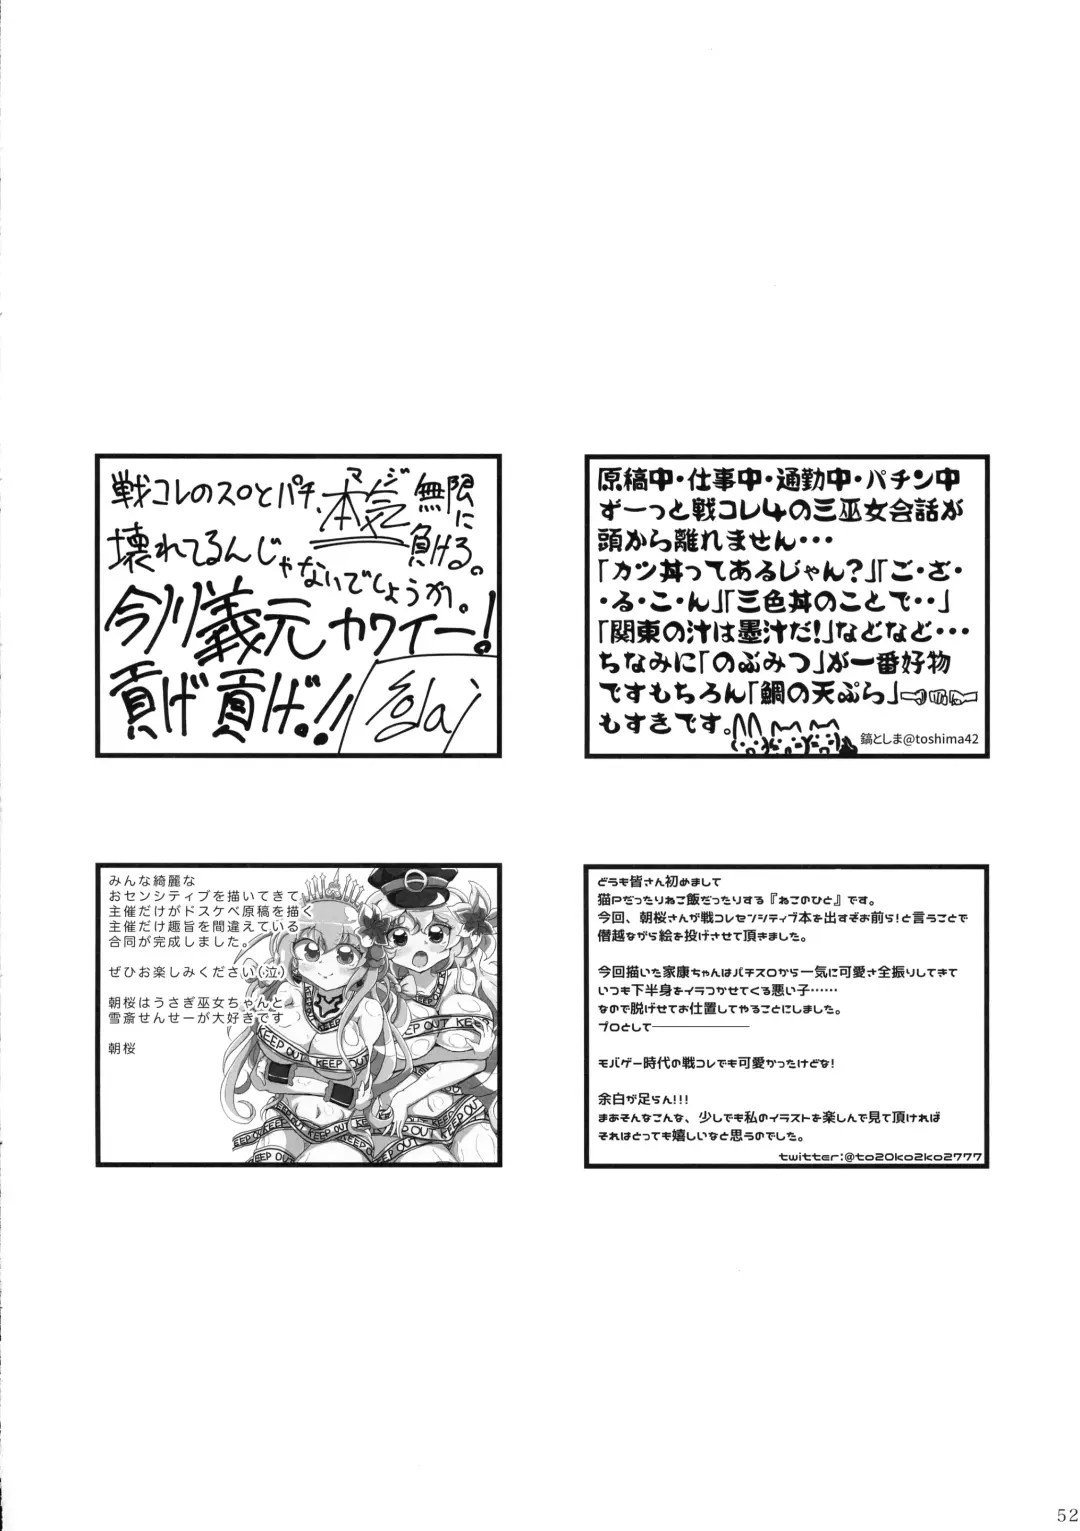 戦コレのスロとパチ、本気マジ無限に負ける。
壊れてるんじゃないでしょうか。
今川義元カワイー!
貢げ貢げ!!
原稿中・仕事中・通勤中・パチン中
ずーっと戦コレ4の三巫女会話が
頭から離れません・・・
「カツ丼ってあるじゃん?」「ご・ざ・
・る・こ・ん」「三色丼のことで・・」
「関東の汁は墨汁だ!」などなど・・・
ちなみに「のぶみつ」が一番好物
ですもちろん「鯛の天ぷら」
もすきです。
鎬としま@toshima42
みんな綺麗な
おセンシティブを描いてきて
主催だけがドスケベ原稿を描く
主催だけ趣旨を間違えている
合同が完成しました。
ぜひお楽しみください(泣)
朝桜はうさぎ巫女ちゃんと
雪斎せんせーが大好きです
朝桜
KEEP OUT KEEP OUT
KEEP OUT KEEP OUT
KEEP OUT KEEP OUT
どうも皆さん初めまして
猫Pだったりねこ飯だったりする『ねこのひと』です。
今回、朝桜さんが戦コレセンシティブ本を出すぞお前ら!と言うことで
僭越ながら絵を投げさせて頂きました。
今回描いた家康ちゃんはパチスロから一気に可愛さ全振りしてきて
いつも下半身をイラつかせてくる悪い子……
なので脱げせてお仕置してやることにしました。
プロとして――――――
モバゲー時代の戦コレでも可愛かったけどな!
余白が足らん!!!
まあそんなこんな、少しでも私のイラストを楽しんで見て頂ければ
それはとっても嬉しいなと思うのでした。
twitter:@to20ko2ko2777
52